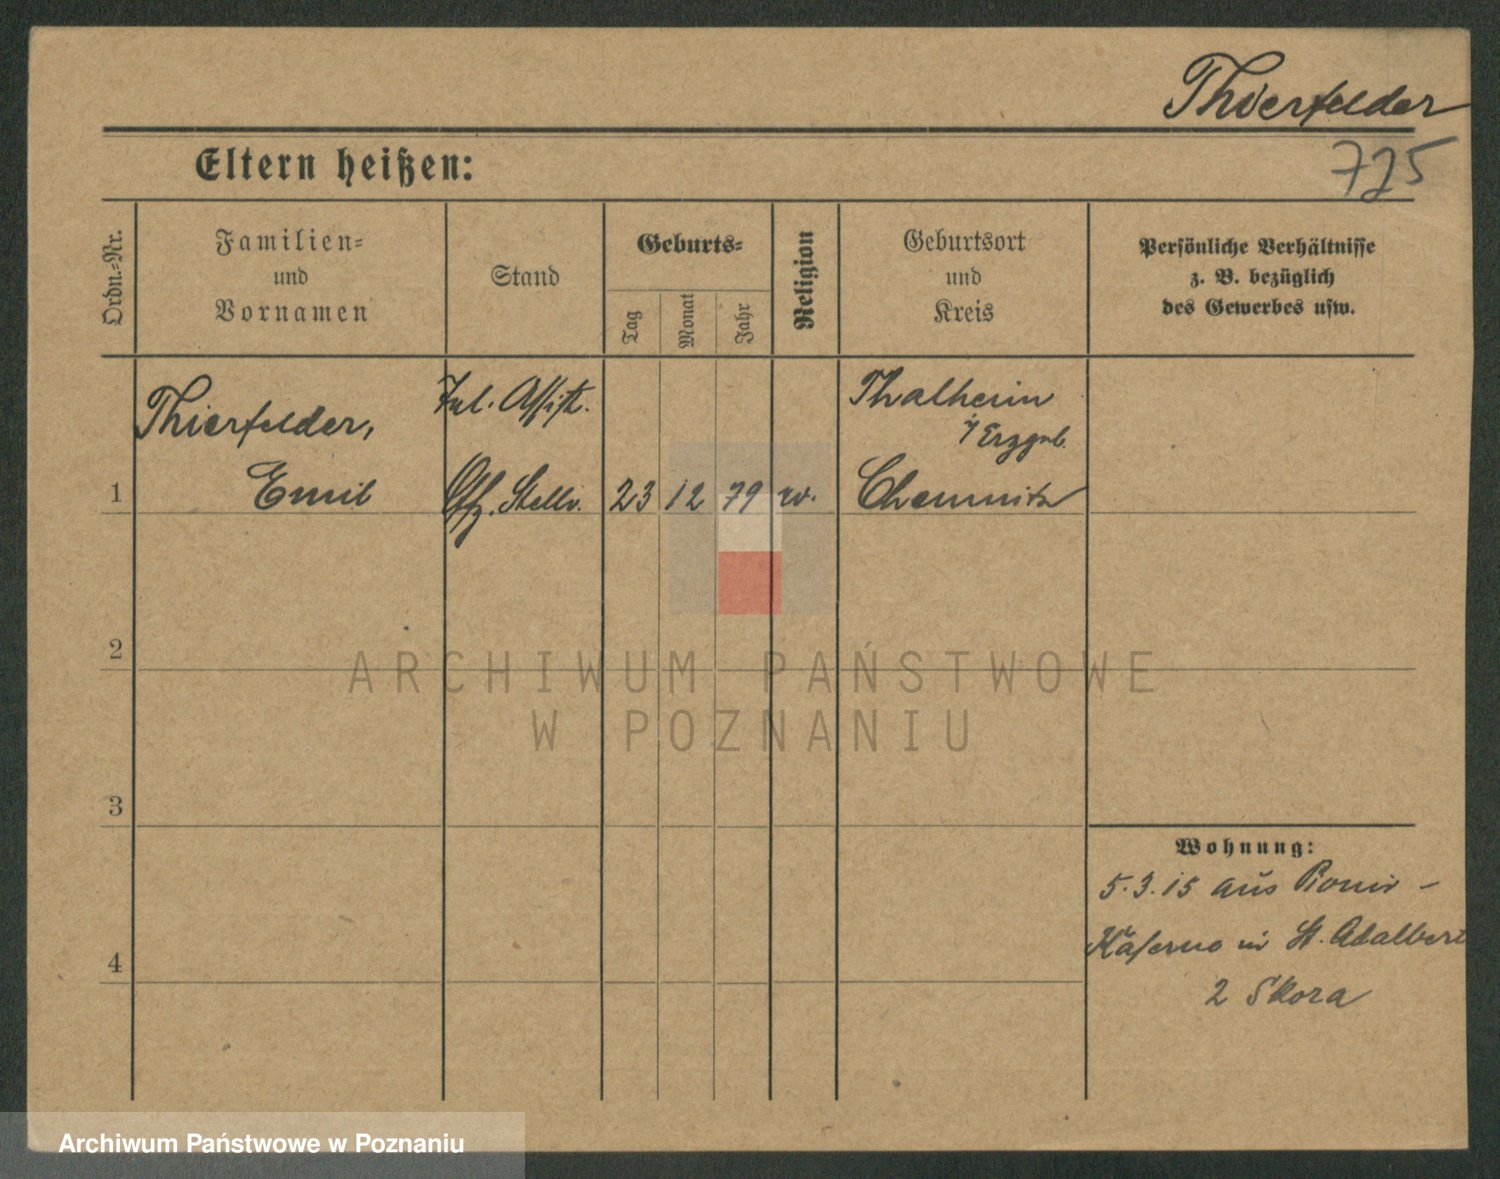 Thierfelder
725
Eltern heißen:
Ordn.=Nr.
Familien=
und
Vornamen
Stand
Geburts=
Tag
Monat
Jahr
Religion
Geburtsort
und
Kreis
Persönliche Verhältnisse
z. B. bezüglich
des Gewerbes usw.
Thierfelder,
Assist.
Thalheim
i/Erzgeb.
1
Emil
Offz. Stellv.
23
12
79
Chemnitz
2
ARCHIWUM PAŃSTWOWE
W POZNANIU
3
Wohnung:
5.3.15 aus Pionir-
Kaserne in St. Adalbert
4
2 Skora
Archiwum Państwowe w Poznaniu